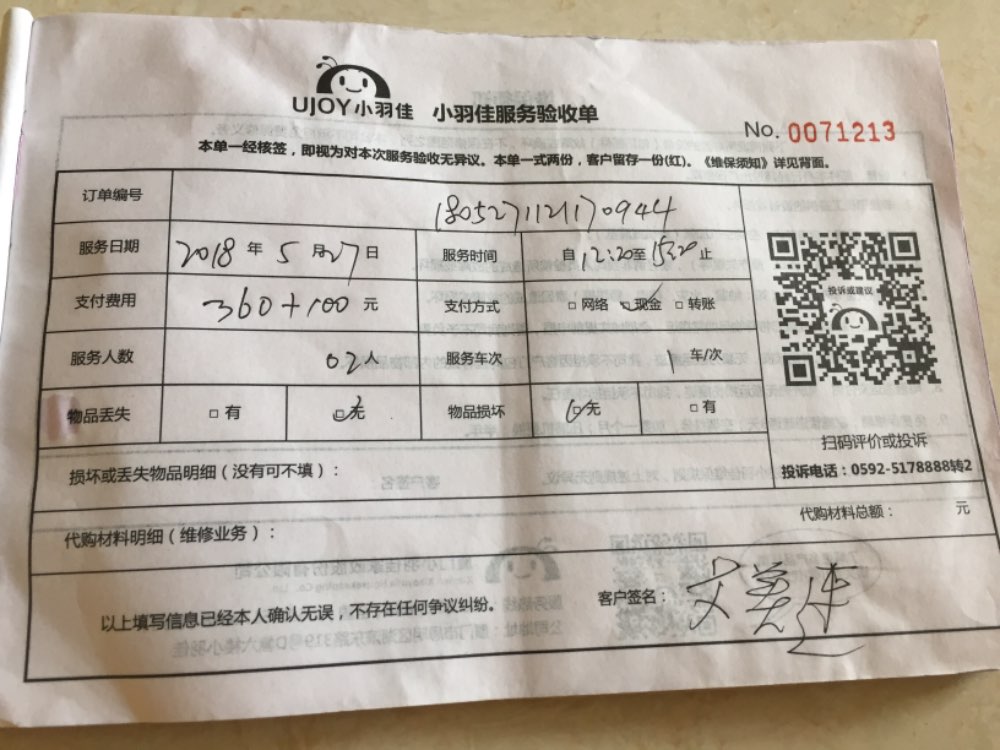 UJOY小羽佳 小羽佳服务验收单
No. 0071213
本单一经核签，即视为对本次服务验收无异议。本单一式两份，客户留存一份(红)。《维保须知》详见背面。
订单编号 180527112170944
服务日期 2018 年 5 月 27 日 服务时间 自 12:20 至 15:20 止
支付费用 360+100 元 支付方式 □网络 □现金 □转账
服务人数 02 人 服务车次 1 车/次
物品丢失 □有 □无 物品损坏 □无 □有
投诉或建议
扫码评价或投诉
投诉电话：0592-5178888转2
损坏或丢失物品明细（没有可不填）：
代购材料明细（维修业务）： 代购材料总额： 元
以上填写信息已经本人确认无误，不存在任何争议纠纷。 客户签名：